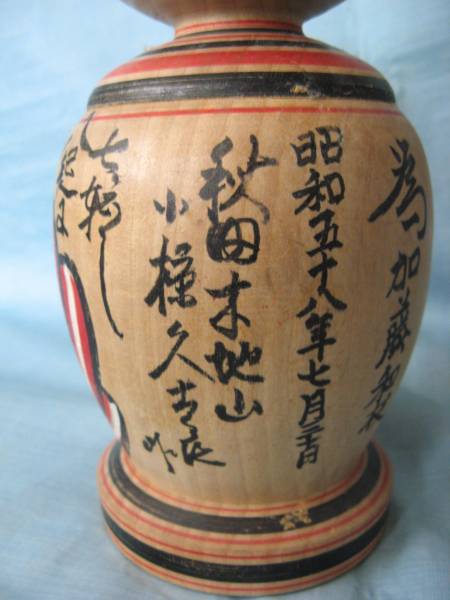 為加藤
昭和五十八年七月二十日
秋田木地山
小椋久太郎作
七転し
起